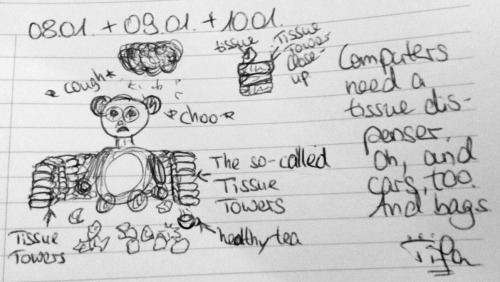 08.01. + 09.01. + 10.01.
tissue
Tissue
Tower
close-
up
*cough*
*choo*
The so-called
Tissue
Towers
Tissue
Towers
healthy tea
Computers
need a
tissue dis-
penser.
Oh, and
cars, too.
And bags.